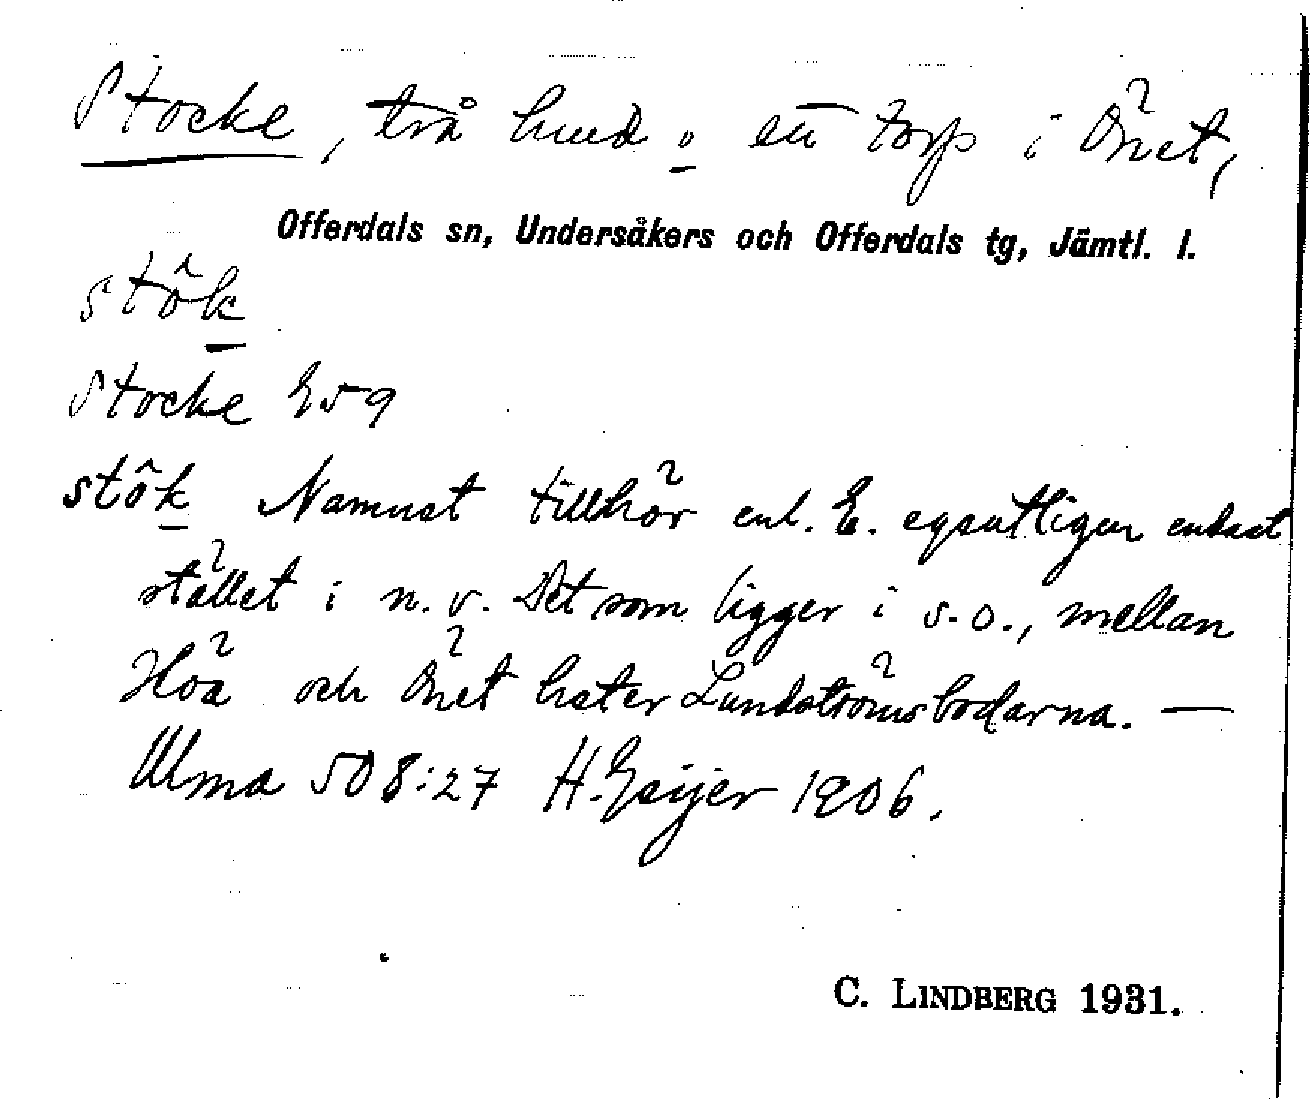 Stocke, två hmd o ett torp i Önet,
Offerdals sn, Undersåkers och Offerdals tg, Jämtl. l.
stôk
Stocke E59
stôk Namnet tillhör enl. E. egentligen endast
stället i n.v. Det som ligger i s.o., mellan
Höa och Önet heter Lundströmsbodarna. —
Ulma 508:27 H. Geijer 1906.
C. LINDBERG 1931.